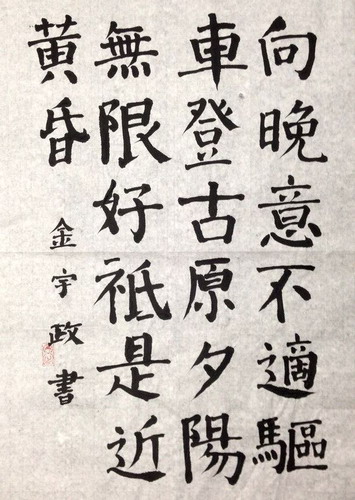 向晚意不適驅
車登古原夕陽
無限好祗是近
黃昏
金宇政書